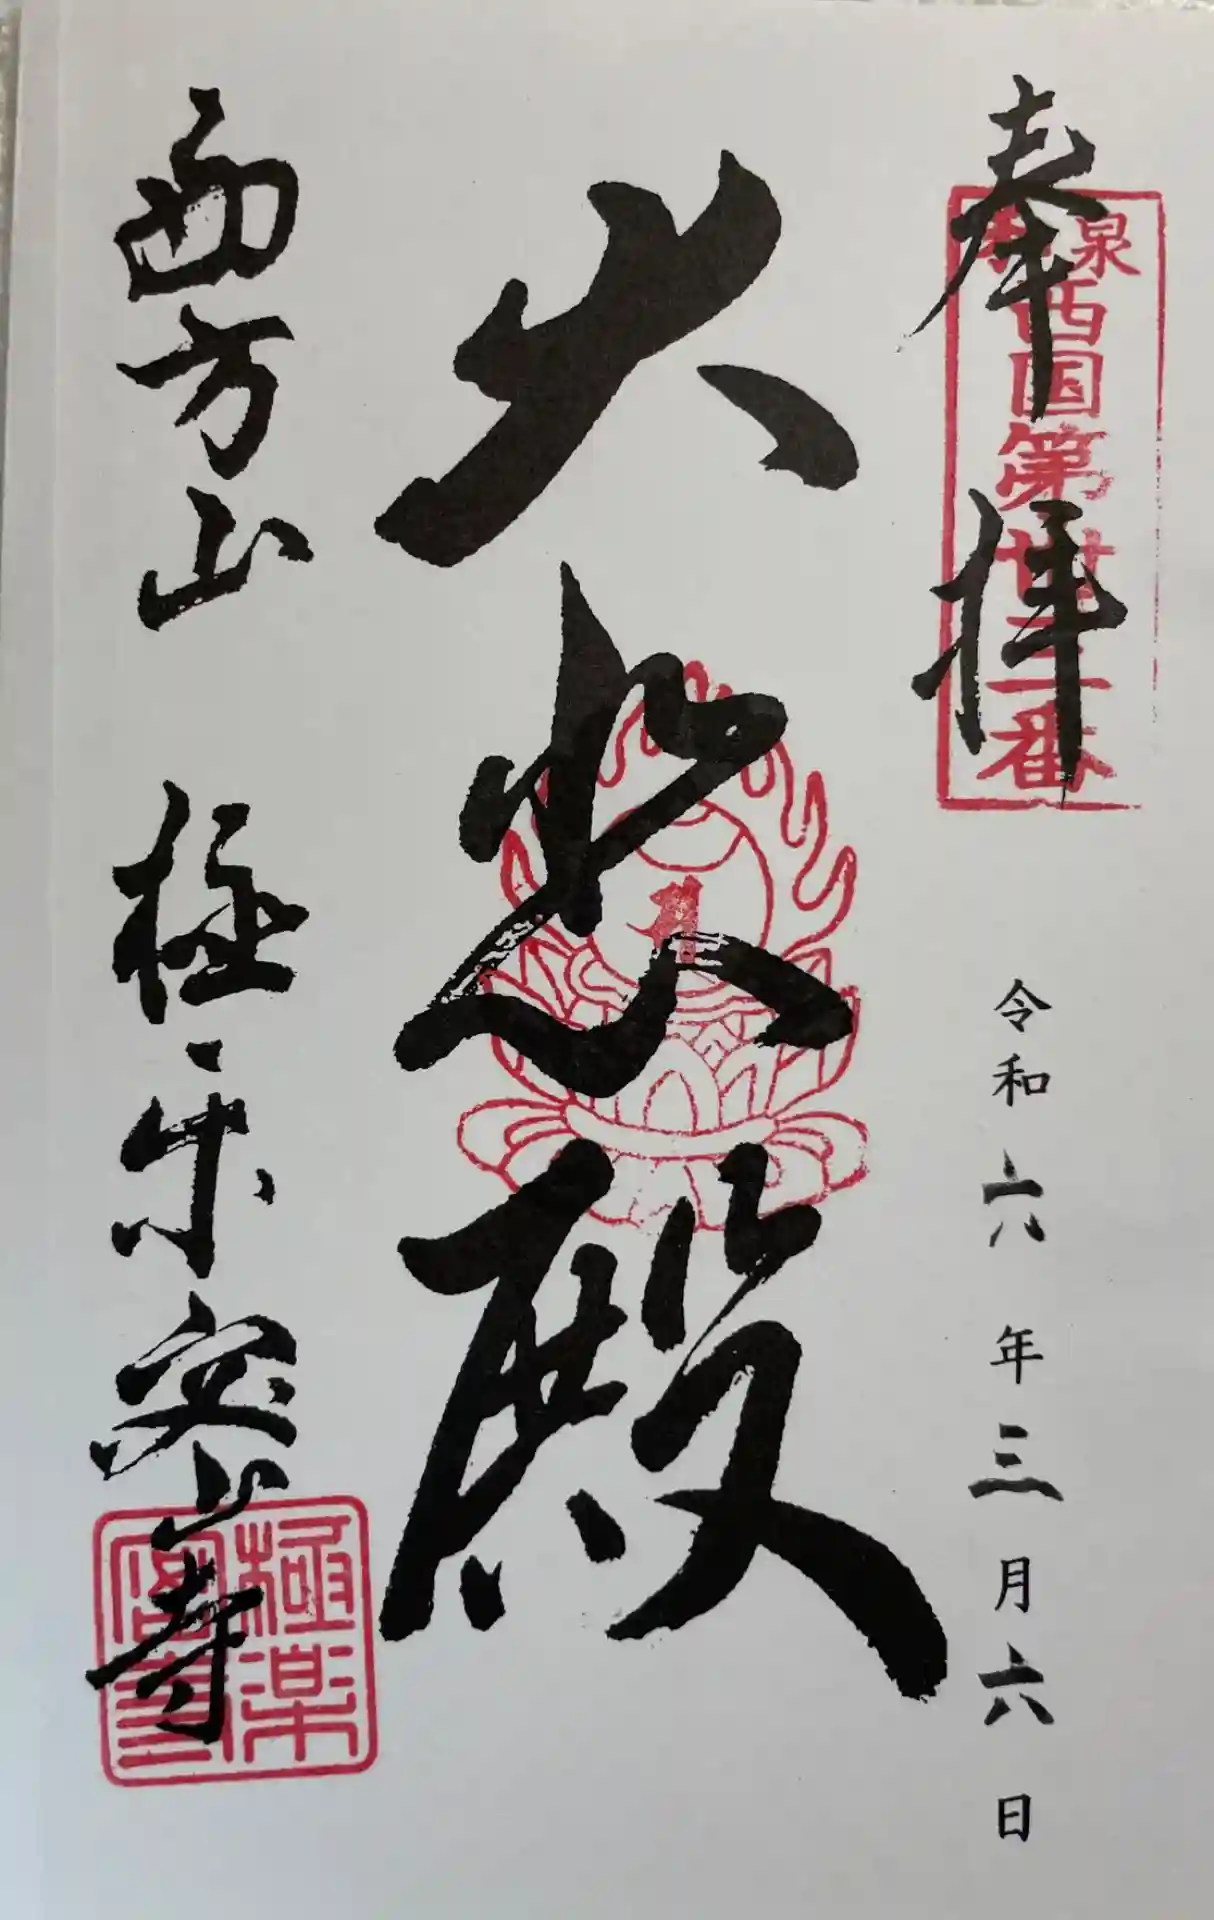 奉拝
泉
西国第 番
令和六年三月六日
大悲殿
西方山 極楽密寺
極楽
密寺